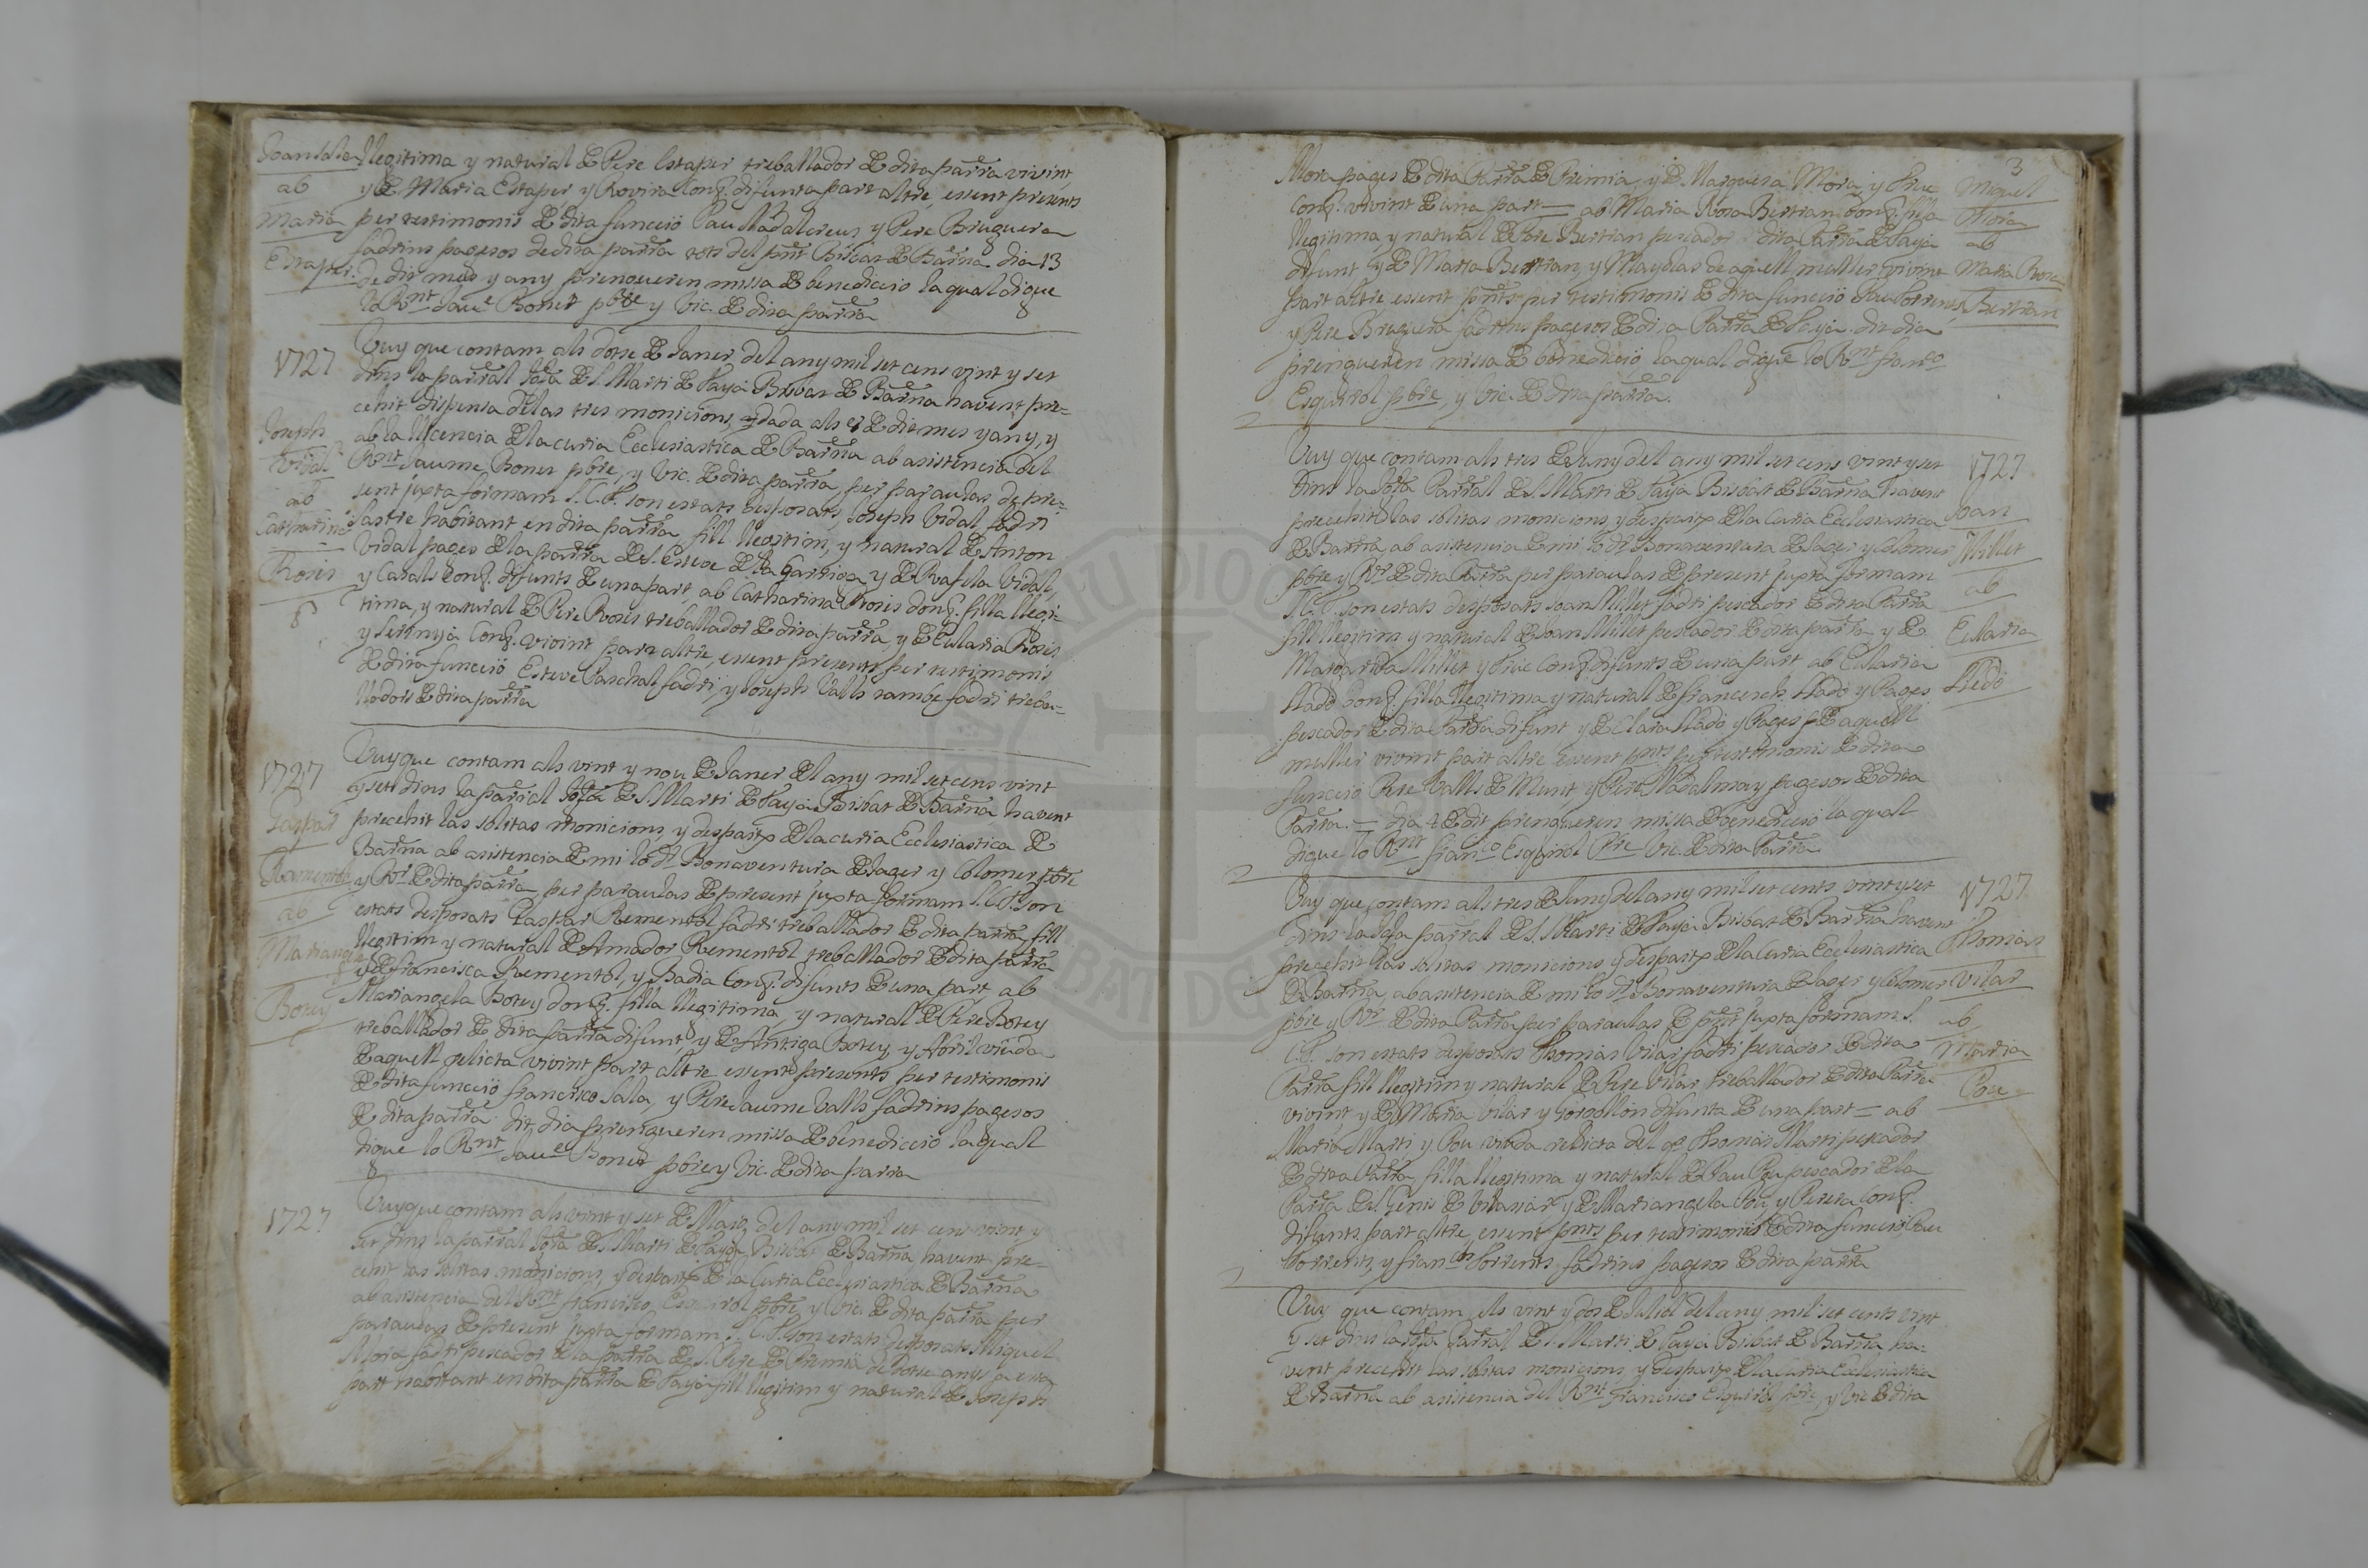 Joan Sala
ab
Maria
Estaper.
llegitima y natural de Pere Estaper treballador de dita parra vivint,
y de Maria Estaper y Rovira Conj. difunta part altre, essent presents
per testimonis de dita funcció Pau Nadal creus y Pere Bruguera
fadrins pagesos de dita parra tots del pnt Bisbat de Barna. dia 13
de dit mes y any prengueren missa de benedicció la qual digue
lo Rnt Jaue Bonet pbre y Vic. de dita parra
1727
Joseph
Vidal
ab
Catharina
Roses
Vuy que contam als dotse de Janer del any mil set cens vint y set
dins la parral Iglia de S. Marti de Tayá Bisbat de Barna havent pre=
cehit dispensa de las tres monicions, dada als 9 de dit mes y any, y
ab la llicencia de la curia Ecclesiastica de Barna ab asistencia del
Rnt Jaume Bonet pbre, y Vic. de dita parra, per paraulas de pre=
sent juxta formam S.C.T. son estats desposats, Joseph Vidal fadri
sastre habitant en dita parra fill llegitim, y natural de Anton
Vidal pages de la parra de S. Esteve de la Garriga y de Rafela Vidal,
y Casals Conj. difunts de una part, ab Catharina Roses donz. filla llegi=
tima, y natural de Pere Roses treballador de dita parra, y de Eularia Roses
y Serinyá Conj. vivint part altre, essent presents per testimonis
de dita funcció Esteve Paschal fadri, y Joseph Valls tambe fadri treba=
lladors de dita parra
1727
Gaspar
Ramentol
ab
Mariangela
Botey
Vuy que contam als vint y nou de Janer del any mil set cens vint
y set dins la parral Iglia de S. Marti de Tayá Bisbat de Barna havent
precehit las solitas monicions, y despaitx de la curia Ecclesiastica de
Barna ab asistencia de mi lo Dr Bonaventura de Jager y Colomer pbre
y Rr de dita parra, per paraulas de present juxta formam S.C.T. son
estats desposats Gaspar Rementol fadri treballador de dita parra fill
llegitim y natural de Amador Rementol treballador de dita parra
y de Francisca Rementol, y Badia Conj. difunts de una part, ab
Mariangela Botey donz. filla llegitima, y natural de Pere Botey
treballador de dita parra difunt y de Antiga Botey y Abril viuda
de aquell relicta vivint part altre essent presents per testimonis
de dita funcció francisco Sala, y Pere Jaume Valls fadrins pagesos
de dita parra dit dia prengueren missa de benedicció la qual
digue lo Rnt Jaue Bonet pbre y Vic. de dita parra
1727
Vuy que contam als vint y set de Mars del any mil set cens vint y
set dins la parral Iglia de S. Marti de Tayá Bisbat de Barna havent pre=
cehit las solitas monicions, y despaitx de la Curia Ecclesiastica de Barna
ab asistencia del Rnt francisco Esquirol pbre, y Vic. de dita parra per
paraulas de present juxta formam S.C.T. son estats desposats Miquel
Mora fadri pescador de la parra de S. Pere de Premiá de dotse anys a esta
part habitant en dita parra de Tayá fill llegitim y natural de Joseph
3
Miquel
Mora
ab
Maria Rosa
Bertran
Mora pages de dita Parra de Premiá, y de Marguera Mora, y fruc
Conj. vivint de una part = ab Maria Rosa Bertran donz. filla
llegitima y natural de Pere Bertran pescador dita Parra de Tayá
difunt y de Maria Bertran, y Mayolas de aquell muller vivint
part altre essent pnts per testimonis de dita funcció Pau Torrents
y Pere Bruguera fadrins pagesos de dita Parra de Tayá. dit dia
prengueren missa de benedicció la qual digue lo Rnt franco
Esquirol pbre, y Vic. de dita parra.
1727
Joan
Millet
ab
Eularia
Lledó
Vuy que contam als tres de Juny del any mil set cens vint y set
dins la Iglia Parral de S. Marti de Tayá Bisbat de Barna havent
precehit las solitas monicions y despaitx de la Curia Ecclesiastica
de Barna, ab asistencia de mi lo Dr Bonaventura de Jager y Colomer
pbre y Rr de dita Parra per paraulas de present juxta formam
S.C.T. son estats desposats Joan Millet fadri pescador de dita Parra
fill llegitim y natural de Joan Millet pescador de dita parra y de
Margarida Millet y fruc Conj. difunts de una part ab Eularia
Lladó donz. filla llegitima y natural de francesch Lladó y Pages
pescador de dita Parra difunt y de Clara Lladó y Pages de aquell
muller vivint part altre essent pnts per testimonis de dita
funcció Pere Valls de Munt y Pere Nadalmay pagesos de dita
Parra. = dia 4 de dit prengueren missa de benedicció la qual
digue lo Rnt franco Esquirol Pbre Vic. de dita Parra
1727
Thomas
Vilar
ab
Maria
Pou
Vuy que contam als tres de Juny del any mil set cents vint y set
dins la Iglia parral de S. Marti de Tayá Bisbat de Barna havent
precehit las solitas monicions y despaitx de la Curia Ecclesiastica
de Barna, ab asistencia de mi lo Dr Bonaventura de Jager y Colomer
pbre y Rr de dita Parra per paraulas de pnt juxta formam S.
C.T. son estats desposats Thomas Vilar fadri pescador de dita
Parra fill llegitim y natural de Pere Vilar treballador de dita Parra
vivint y de Maria Vilar y Gorgollon difunta de una part = ab
Maria Marti, y Pou viuda relicta del qº Thomas Marti pescador
de dita Parra filla llegitima y natural de Pau Pou pescador de la
Parra de S. Genis de Vilassar y de Mariangela Pou y Perera Conj.
difunts part altre, essent pnts per testimonis de dita funcció Pau
Torrents, y franch Torrents fadrins pagesos de dita parra
Vuy que contam als vint y dos de Juliol del any mil set cents vint
y set dins la Iglia Parral de S. Marti de Tayá Bisbat de Barna ha=
vent precehit las solitas monicions y despaitx de la Curia Ecclesiastica
de Barna ab asistencia del Rnt Francisco Esquirol pbre, y Vic de dita